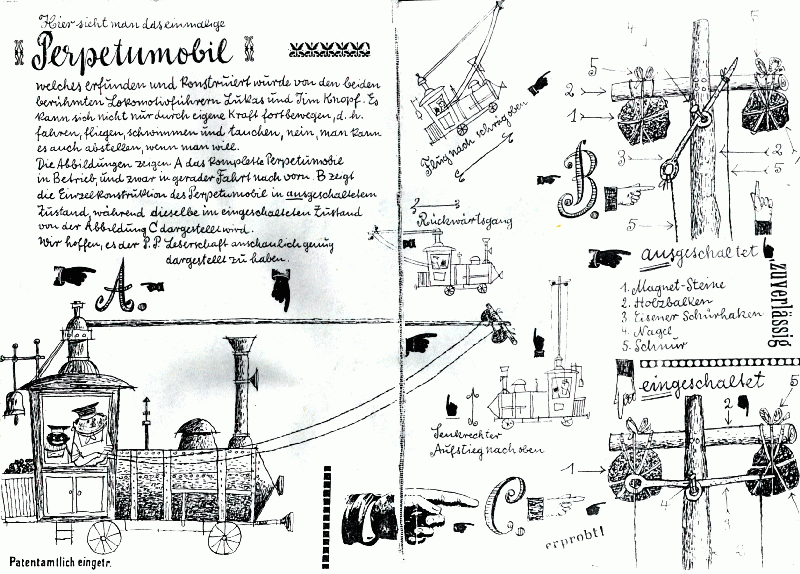 Hier sieht man das einmalige
Perpetumobil
welches erfunden und konstruiert wurde von den beiden
berühmten Lokomotivführern Lukas und Jim Knopf. Es
kann sich nicht nur durch eigene Kraft fortbewegen, d.h.
fahren, fliegen, schwimmen und tauchen, nein, man kann
es auch abstellen, wenn man will.
Die Abbildungen zeigen A das komplette Perpetumobil
in Betrieb, und zwar in gerader Fahrt nach vorn. B zeigt
die Einzelkonstruktion des Perpetumobil in ausgeschaltetem
Zustand, während dieselbe im eingeschalteten Zustand
von der Abbildung C dargestellt wird.
Wir hoffen, es der P.P. Leserschaft anschaulich genug
dargestellt zu haben.
A.
Patentamtlich eingetr.
Flug nach schräg oben
Rückwärtsgang
Senkrechter
Aufstieg nach oben
B.
4
5
5
2
1
3
1
2
5
5
ausgeschaltet
zuverlässig
1. Magnet-Steine
2. Holzbalken
3. Eisener Schürhaken
4. Nagel
5. Schnur
eingeschaltet
C.
erprobt!
5
2
1
4
3
1